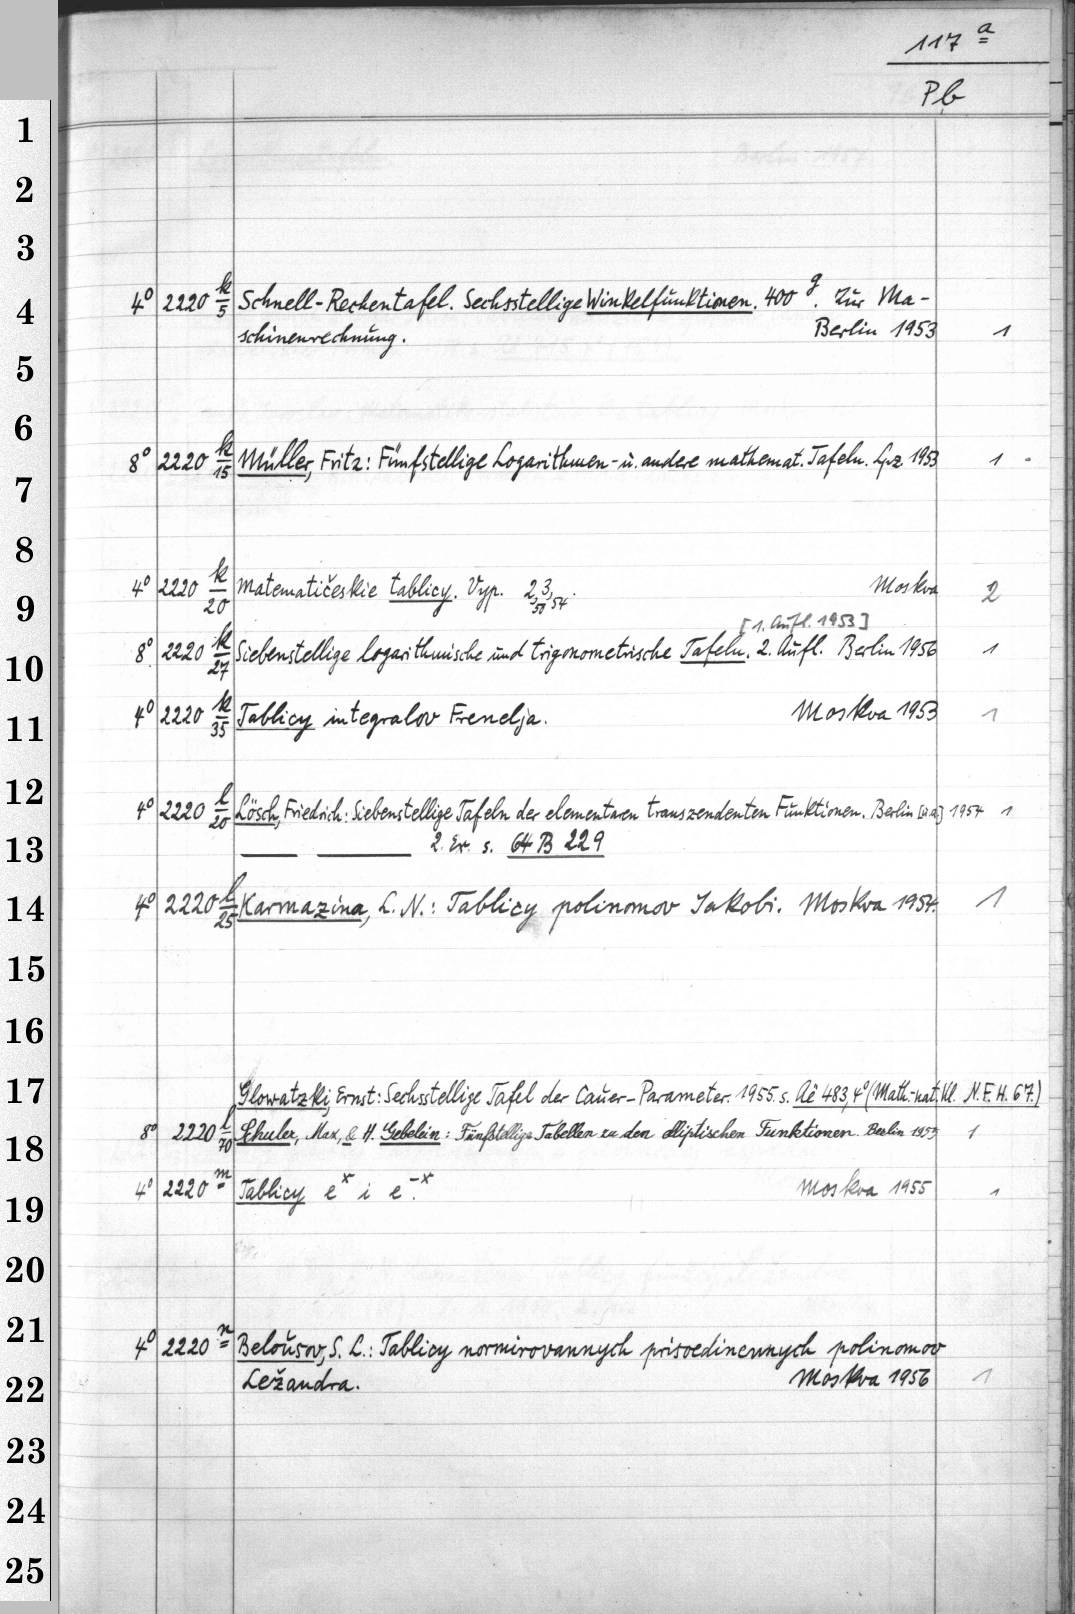 117 a
Pb
1
2
3
4⁰ 2220 k/5 Schnell-Rechentafel. Sechsstellige Winkelfunktionen. 400 g. Zur Ma-
4
schinenrechnung. Berlin 1953 1
5
6
8⁰ 2220 k/15 Müller, Fritz: Fünfstellige Logarithmen- u. andere mathemat. Tafeln. Lpz 1953 1
7
8
4⁰ 2220 k/20 Matematičeskie tablicy. Vyp. 2,50 3,54. Moskva 2
9
[1. Aufl. 1953]
8⁰ 2220 k/27 Siebenstellige logarithmische und trigonometrische Tafeln. 2. Aufl. Berlin 1956 1
10
4⁰ 2220 k/35 Tablicy integralov Frenelja. Moskva 1953 1
11
12
4⁰ 2220 l/20 Lösch, Friedrich: Siebenstellige Tafeln der elementaren transzendenten Funktionen. Berlin [u.a.] 1954 1
13
2. Ex. s. 64 B 229
4⁰ 2220 l/25 Karmazina, L. N.: Tablicy polinomov Jakobi. Moskva 1954. 1
14
15
16
17
Glowatzki, Ernst: Sechsstellige Tafel der Cauer-Parameter. 1955. s. Ac 483, 4⁰ (Math.-nat. Kl. N.F. H. 67.)
8⁰ 2220 l/70 Schuler, Max, & H. Gebelein: Fünfstellige Tabellen zu den elliptischen Funktionen. Berlin 1955 1
18
4⁰ 2220 m Tablicy e^x i e^-x. Moskva 1955 1
19
20
21
4⁰ 2220 n Belousov, S. L.: Tablicy normirovannych prisoedinennych polinomov
22
Ležandra. Moskva 1956 1
23
24
25